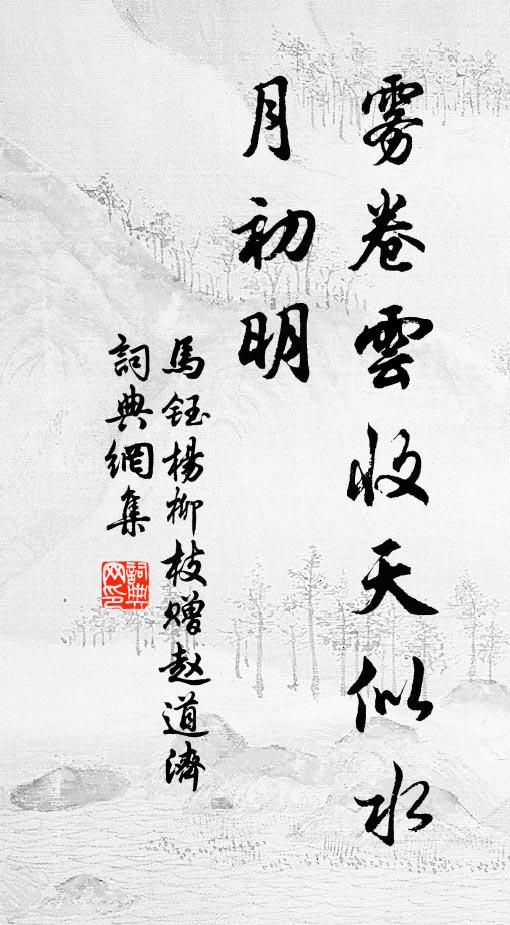 雾卷雲收天似水
月初明
馬鈺楊柳枝赠赵道濟
詞典網集
詞典
网印